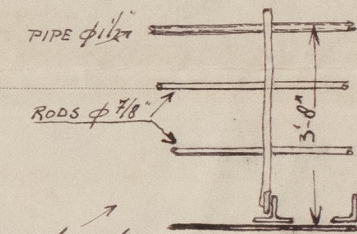 PIPE ⌀1½"
RODS ⌀ 7/8"
3'-8"